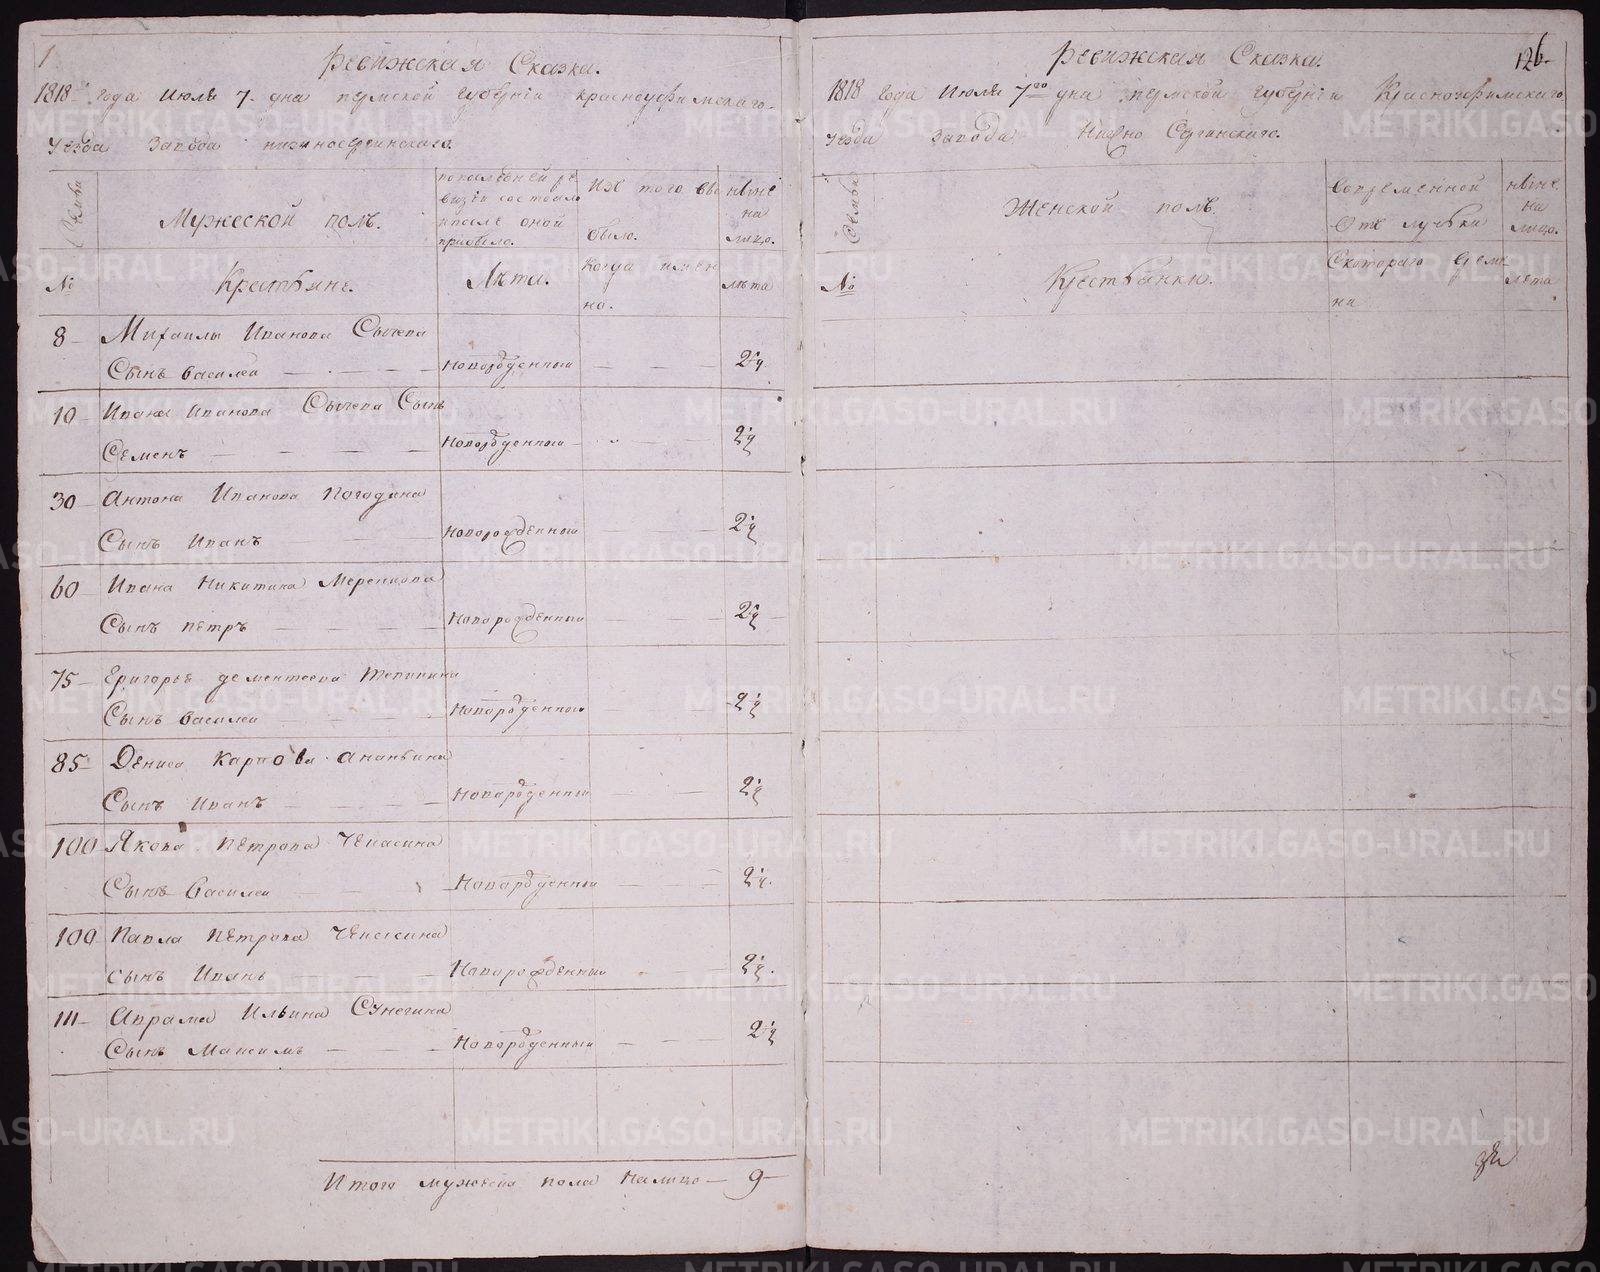 1
Ревижская Сказка.
1818 года Июля 7 дня пермской губерніи красноуфимскаго
уезда завода нижносергинскаго.
Семьи
Мужеской полъ.
попоследней ре
визіи состояло
ипосле оной
прибыло.
Изъ того
было.
ныне
на
лицо.
№
Крестьяне.
Лѣта.
Когда имен
но.
лѣта
8 Михаилы Иванова Сычева
Сынъ василеи новорожденный 2 1/4
10 Ивана Иванова Сычева Сынъ
Семенъ новорожденныи 2 1/2
30 Антона Иванова Погодина
Сынъ Иванъ новорожденныи 2 1/2
60 Ивана Никитина
Сынъ петръ Новорожденныи 2 1/2
75 Григорья дементеева
Сынъ василеи Новорожденныи 2 1/2
85 Дениса Карпова ананьина
Сынъ иванъ Новорожденныи 2 1/2
100 Якова петрова
Сынъ василеи Новорожденныи 2 1/4.
100 Павла петрова
сынъ Иванъ Новорожденныи 2 1/2.
111 Аврама Ильина
Сынъ Максимъ Новорожденныи 2 1/2
Итого мужеска пола Налицо 9
126
Ревижская Сказка.
1818 года Июля 7го дня пермской губерніи Красноуфимскаго
уезда завода Нижно Сергинскаго.
Семьи
Женской полъ.
Вовременной
Отлучьки
ныне
на
лицо.
№
Крестьянки.
Скотораго време
ни
лета